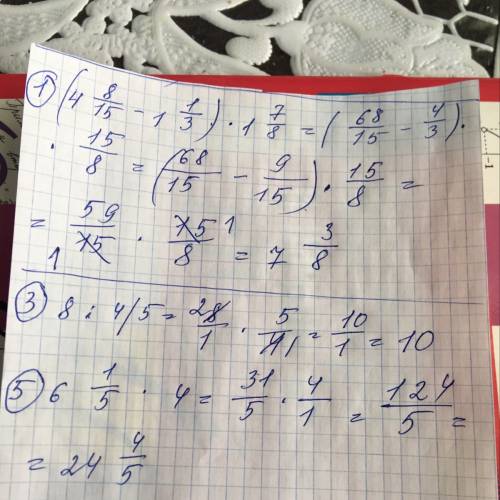 ① (4 8/15 - 1 1/3) · 1 7/8 = (68/15 - 4/3) ·
· 15/8 = (68/15 - 9/15) · 15/8 =
= 59/15 · 15/8 = 7 3/8
1 1
③ 8 : 4/5 = 28/1 · 5/41 = 10/1 = 10
⑤ 6 1/5 · 4 = 31/5 · 4/1 = 124/5 =
= 24 4/5